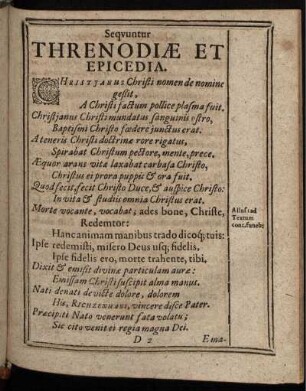 Seqvuntur
THRENODIÆ ET
EPICEDIA.
CHRISTJANUS Christi nomen de nomine
gessit,
A Christi factum pollice plasma fuit.
Christjanus Christi mundatus sanguinis ostro,
Baptismi Christo fœdere junctus erat.
A teneris Christi doctrinæ rore rigatus,
Spirabat Christum pectore, mente, prece.
Æquor arans vitæ laxabat carbasa Christo,
Christus ei prora puppis & ora fuit.
Quod fecit, fecit Christo Duce, & auspice Christo:
In vita & studiis omnia Christus erat.
Morte vocante, vocabat; ades bone, Christe,
Redemtor:
Hanc animam manibus trado dicoq; tuis:
Ipse redemisti, misero Deus usq; fidelis,
Ipse fidelis ero, morte trahente, tibi,
Dixit & emisit divinæ particulam auræ:
Emissam Christi suscipit alma manus.
Nati denati devicte dolore, dolorem
Hn. vincere disce Pater.
Præcipiti Nato venerunt fata volatu;
Sic cito venit ei regia magna Dei.
D 2
Ema-